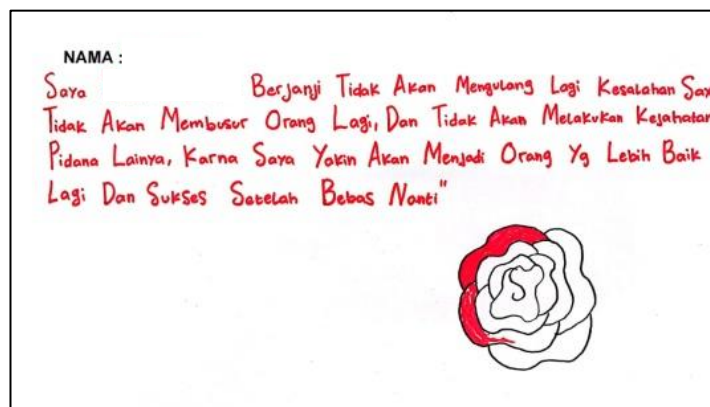 NAMA :
Saya Berjanji Tidak Akan Mengulang Lagi Kesalahan
Tidak Akan Membusur Orang Lagi, Dan Tidak Akan Melakukan Kejahatan
Pidana Lainya, Karna Saya Yakin Akan Menjadi Orang Yg Lebih Baik
Lagi Dan Sukses Setelah Bebas Nanti"